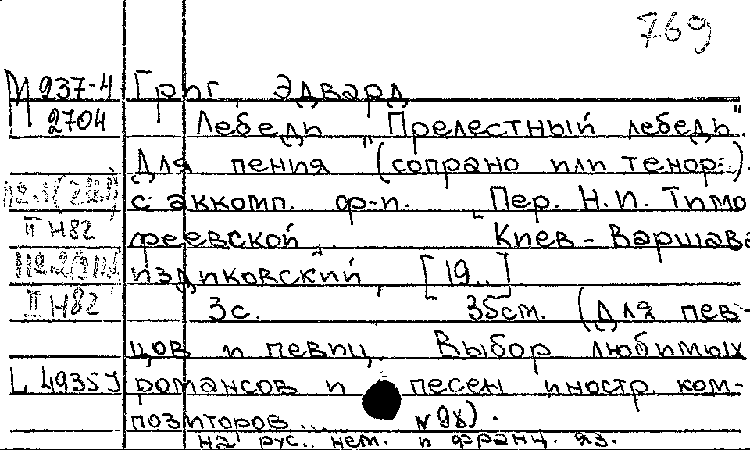 769
М 937-4 Григ, Эдвард
2704 Лебедь "Прелестный лебедь".
Для пения (сопрано или тенор).
с аккомп. ф-п. Пер. Н.П. Тимо
II Н82 феевской. Киев - Варшава
Идзиковский, [19..]
II Н82 3с. 35см. (Для пев-
цов и певиц. Выбор любимых
L 4935 романсов и песен иностр. ком-
позиторов... №98).
на рус., нем. и франц. яз.